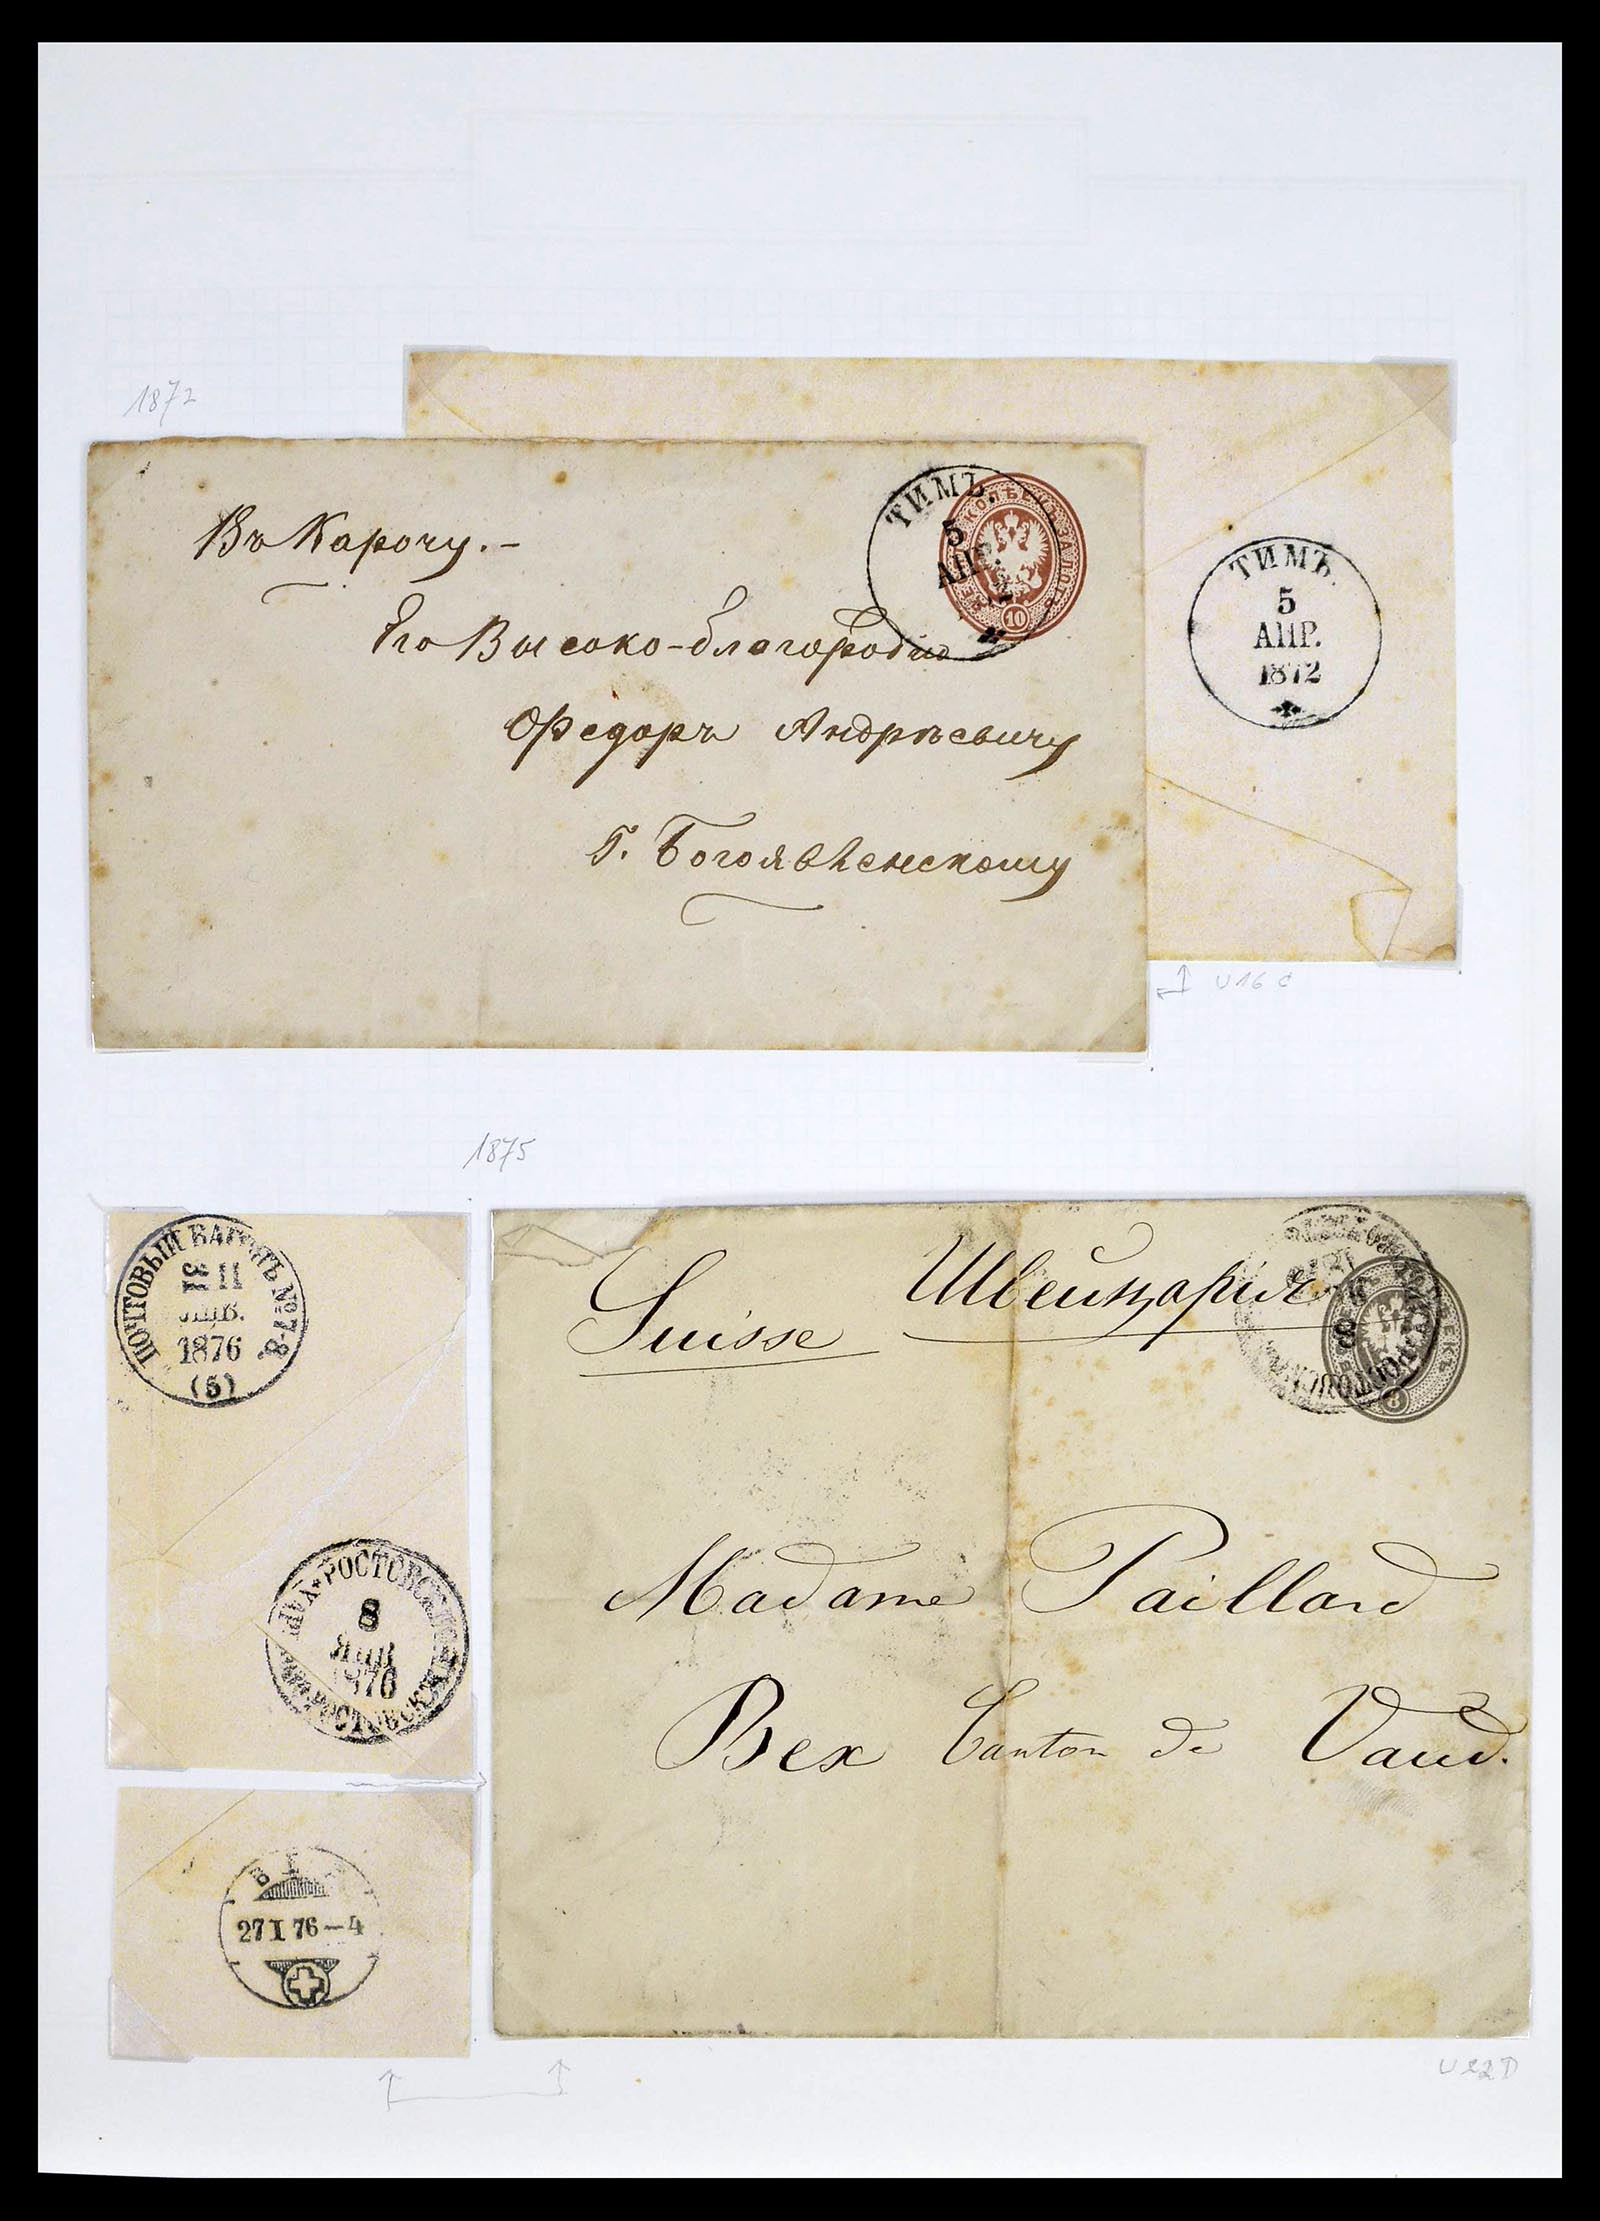 1872
Въ Карочу. -
Его Высоко-благородію
Федоръ Андрѣевичу
Г. Богоявленскому
ТИМЪ.
5
АПР.
10
ТИМЪ.
5
АПР.
1872
U16 C
1875
ПОЧТОВЫЙ ВАГОНЪ № 7-8
11
ЯНВ.
1876
(5)
РОСТОВСК
8
ЯНВ
1876
27 I 76 – 4
Suisse Швейцарія
8
8
Madame Paillard
Bex Canton de Vaud.
U22D